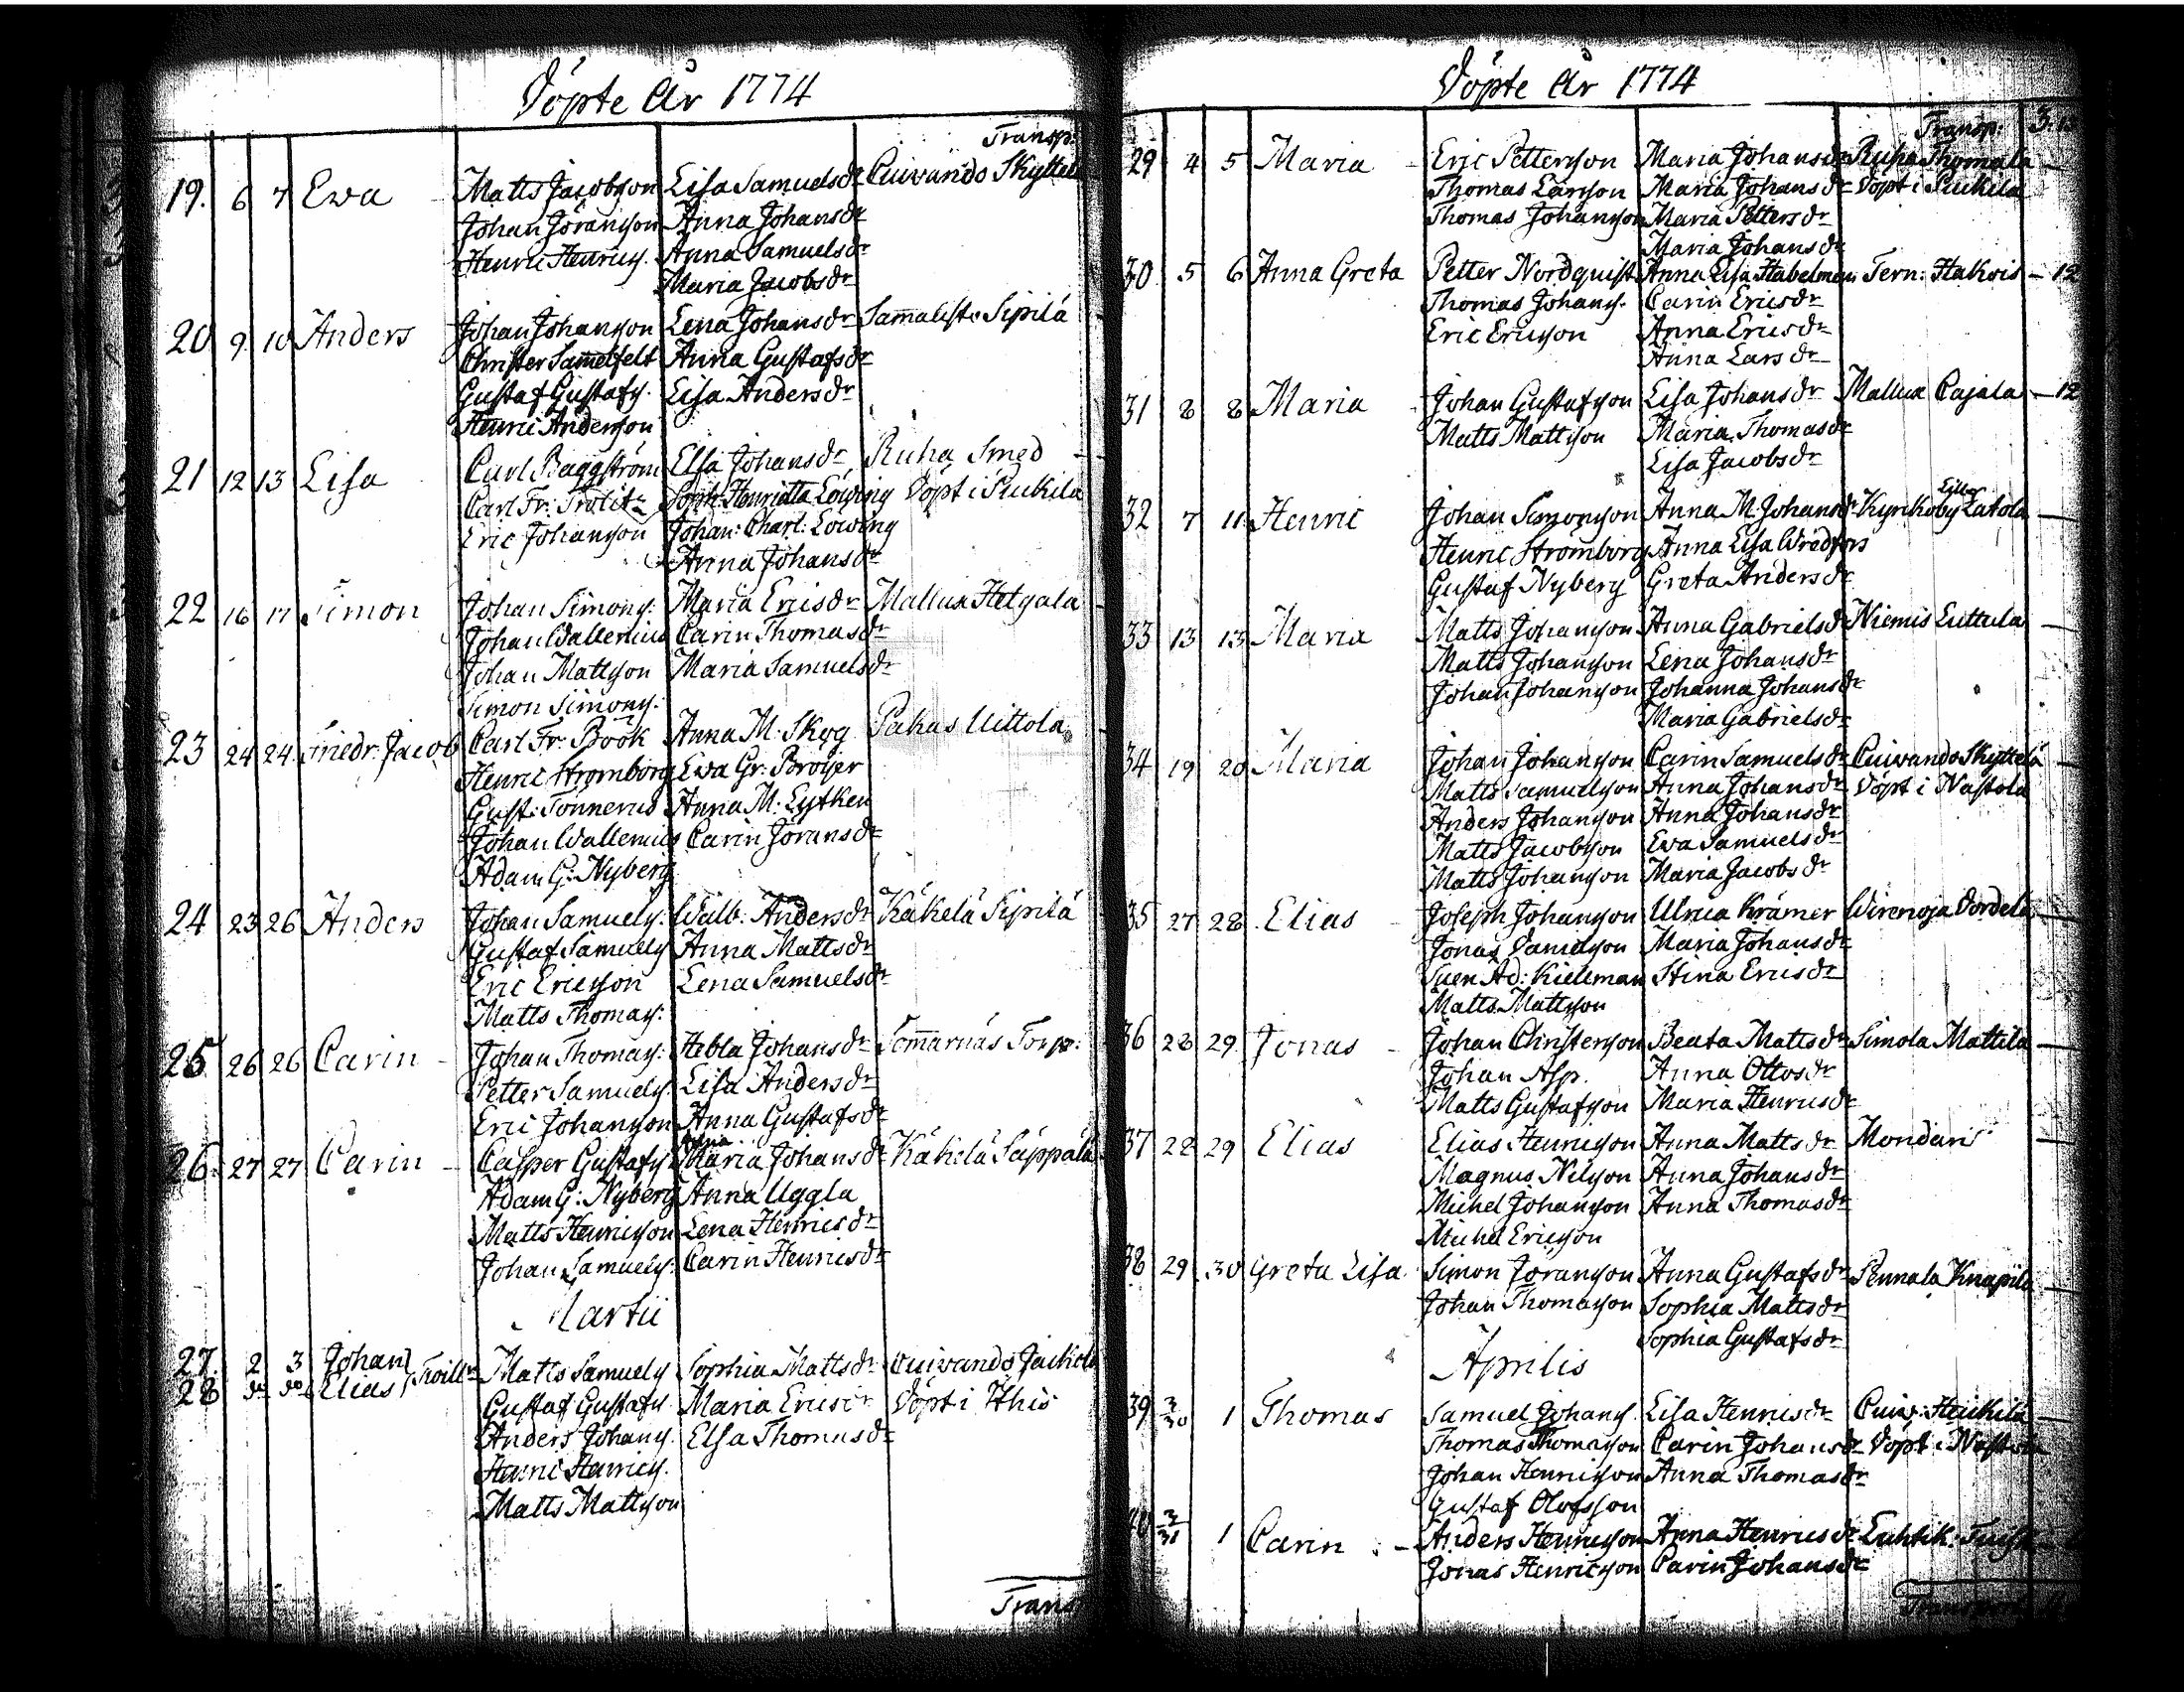 Döpte År 1774
Transp:
19. 6 7 Ewa - Matts Jacobsson Lisa Samuelsdr Cuivando Skyttelä
Johan Jöransson Anna Johansdr
Henric Henrics. Anna Samuelsdr
Maria Jacobsdr
20 9 10 Anders Johan Johansson Lena Johansdr Samalisto Sipilä
Christer Samelfelt Anna Gustafsdr
Gustaf Gustafs. Lisa Andersdr
Henric Andersson
21 12 13 Lisa Carl Baggström Elsa Johansdr Ruha Smed
Carl Fr: Soph: Henrietta Löwing Döpt i Puikila
Eric Johansson Johan: Charl: Löwing
Anna Johansdr
22 16 17 Simon Johan Simons: Maria Ericsdr Mallua Helgala
Johan Wallenius Carin Thomasdr
Johan Mattsson Maria Samuelsdr
Simon Simons:
23 24 24 Friedr: Jacob Carl Fr: Böök Anna M. Skog Pakas Uittola
Henric Strömborg Ewa Gr: Broijer
Gust: Tönnerus Anna M. Lytken
Johan Wallenius Carin Jöransdr
Adam G: Nyberg
24 23 26 Anders Johan Samuels: Walb: Andersdr Käkelä Sipilä
Gustaf Samuels Anna Mattsdr
Eric Ericsson Lena Samuelsdr
Matts Thomas:
25 26 26 Carin - Johan Thomas: Hebla Johansdr Tomarnäs Torp:
Petter Samuels. Lisa Andersdr
Eric Johansson Anna Gustafsdr
Anna
26. 27 27 Carin - Casper Gustafs Maria Johansdr Käkelä Säppälä
Adam G: Nyberg Anna Uggla
Matts Henricsson Lena Henricsdr
Johan Samuels: Carin Henricsdr
Martii
27. 2 3 Johan Twill: Matts Samuels Sophia Mattsdr Cuivando Jaickola
28 do do Elias Gustaf Gustafs Maria Ericsdr Döpt i Ithis
Anders Johans. Elsa Thomasdr
Henric Henrics.
Matts Mattsson
Transp
Döpte År 1774
Transp: 3:
29 4 5 Maria - Eric Pettersson Maria Johansdr Ruha Thomala -
Thomas Larsson Maria Johansdr Döpt i Puikila
Thomas Johansson Maria Pettersdr
Maria Johansdr
30 5 6 Anna Greta Petter Nordquist Anna Lisa Habelman Tern: Hakois - 12
Thomas Johans. Carin Ericsdr
Eric Ericsson Anna Ericsdr
Anna Larsdr
31 8 8 Maria - Johan Gustafsson Lisa Johansdr Mallua Cajala - 12
Matts Mattsson Maria Thomasdr
Lisa Jacobsdr
Lilla
32 7 11 Henric Johan Simonsson Anna M Johansdr Kyrkoby Latola -
Henric Strömborg Anna Lisa Wredfors
Gustaf Nyberg Greta Andersdr
33 13 13 Maria Matts Johansson Anna Gabrielsdr Niemis Luttula -
Matts Johansson Lena Johansdr
Johan Johansson Johanna Johansdr
Maria Gabrielsdr
34 19 20 Maria Johan Johansson Carin Samuelsdr Cuivando Skyttelä -
Matts Samuelsson Anna Johansdr Döpt i Nastola
Anders Johansson Anna Johansdr
Matts Jacobsson Ewa Samuelsdr
Matts Johansson Maria Jacobsdr
35 27 28 Elias - Joseph Johansson Ulrica Krämer Wirenoja Dordela -
Jonas Danielsson Maria Johansdr
Suen Ad: Kielleman Stina Ericsdr
Matts Mattsson
36 28 29 Jonas - Johan Christersson Beata Mattsdr Simola Mattila -
Johan Asp. Anna Ottosdr
Matts Gustafsson Maria Henricsdr
37 28 29 Elias Elias Henricsson Anna Mattsdr Mondari -
Magnus Nilsson Anna Johansdr
Michel Johansson Anna Thomasdr
Michel Ericsson
38 29 30 Greta Lisa Simon Jöransson Anna Gustafsdr Pennala Knapila -
Johan Thomasson Sophia Mattsdr
Sophia Gustafsdr
Aprilis
39 3/30 1 Thomas Samuel Johans. Lisa Henricsdr Cuiv: Heickilä -
Thomas Thomasson Carin Johansdr Döpt i Nastola
Johan Henricsson Anna Thomasdr
Gustaf Olofsson
40 3/31 1 Carin - Anders Henricsson Anna Henricsdr Luhtik:
Jonas Henricsson Carin Johansdr
Transport